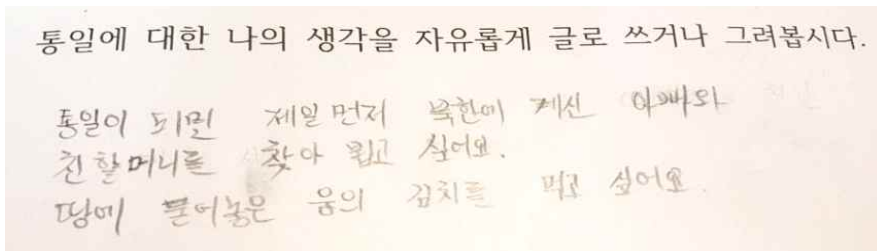 통일에 대한 나의 생각을 자유롭게 글로 쓰거나 그려봅시다.
통일이 되면 제일 먼저 북한에 계신 아빠와
친할머니를 찾아 뵙고 싶어요.
땅에 묻어놓은 움의 김치를 먹고 싶어요.